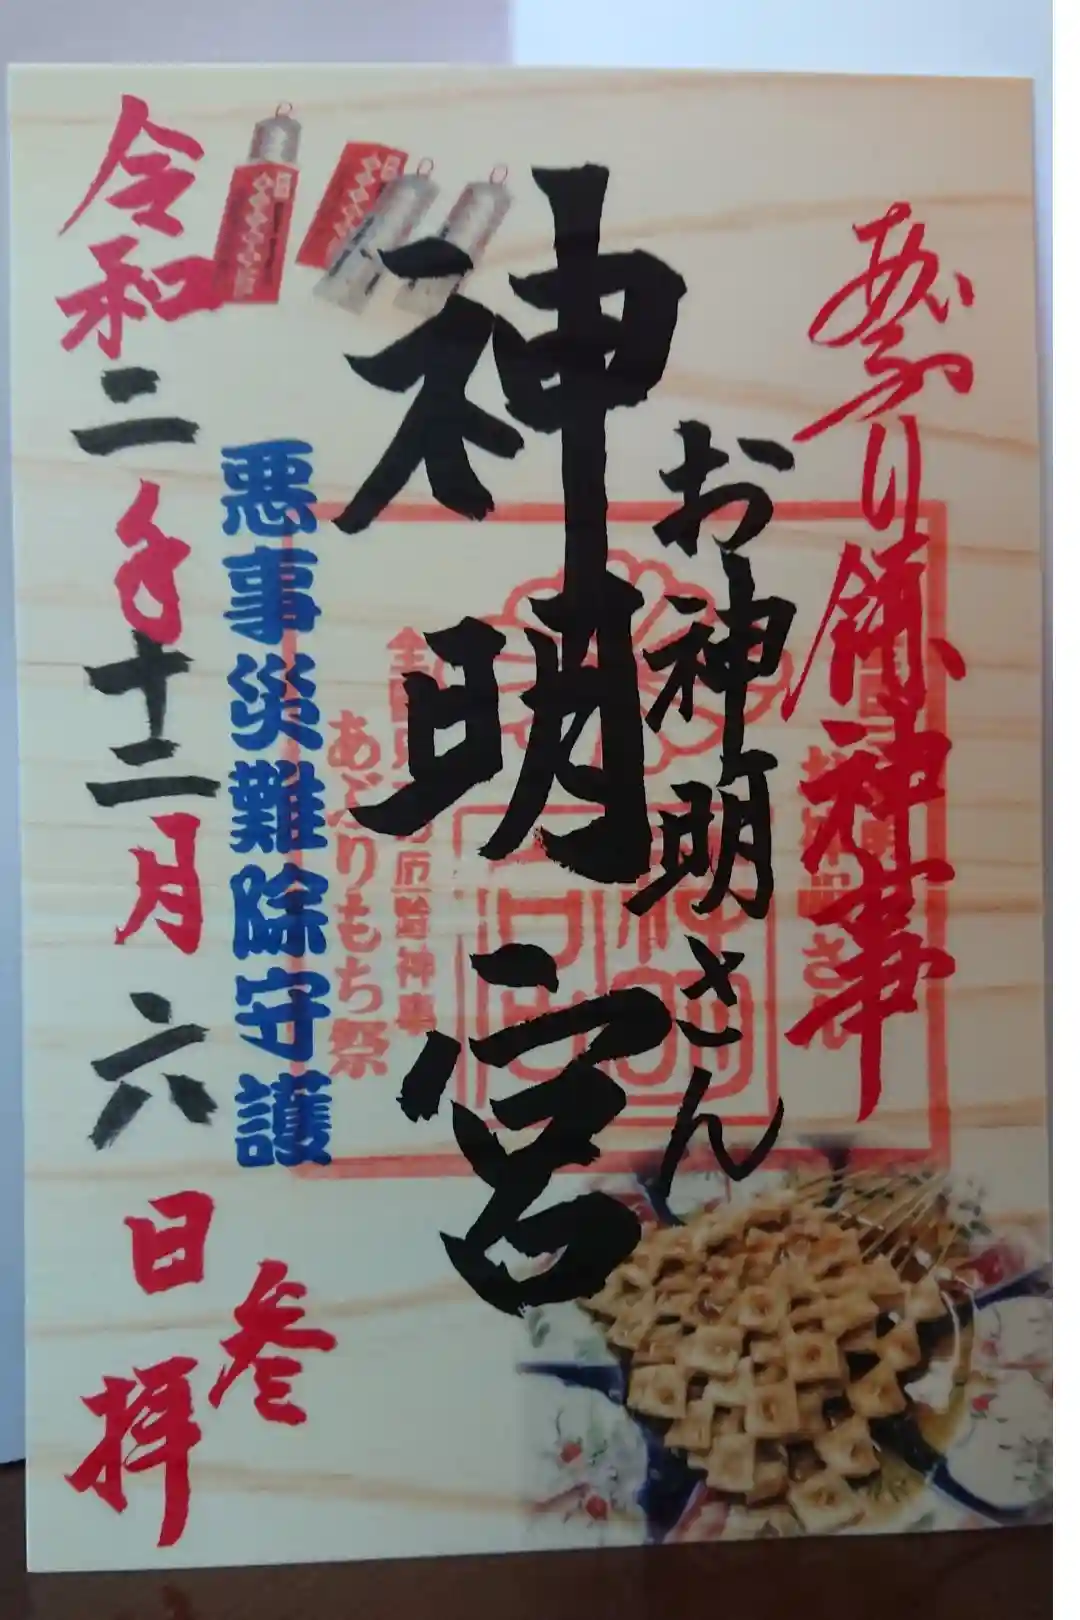 あぶり餅神事
お神明さん
神明宮
あぶりもち祭
悪事災難除守護
令和二年十二月六日
参拝